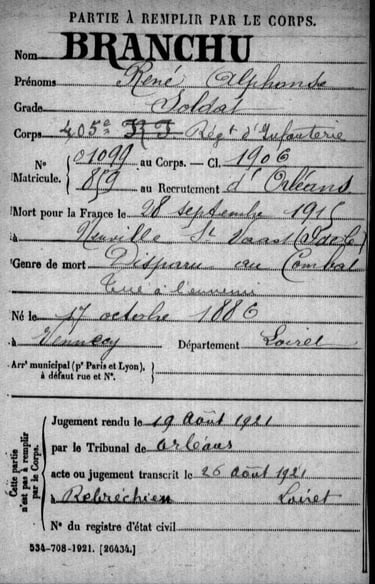 PARTIE À REMPLIR PAR LE CORPS.
Nom BRANCHU
Prénoms René Alphonse
Grade Soldat
Corps 405e R I Régt d'Infanterie
N° Matricule. 01099 au Corps. — Cl. 1906
859 au Recrutement d'Orléans
Mort pour la France le 28 septembre 1915
à Neuville St Vaast (P de C)
Genre de mort Disparu au Combat
Tué à l'ennemi
Né le 17 octobre 1886
à Vennecy Département Loiret
Arrt municipal (pr Paris et Lyon),
à défaut rue et N°.
Cette partie n'est pas à remplir par le Corps.
Jugement rendu le 19 Août 1921
par le Tribunal de Orléans
acte ou jugement transcrit le 26 Août 1921
à Rebréchien Loiret
N° du registre d'état civil
534-708-1921. [26434.]